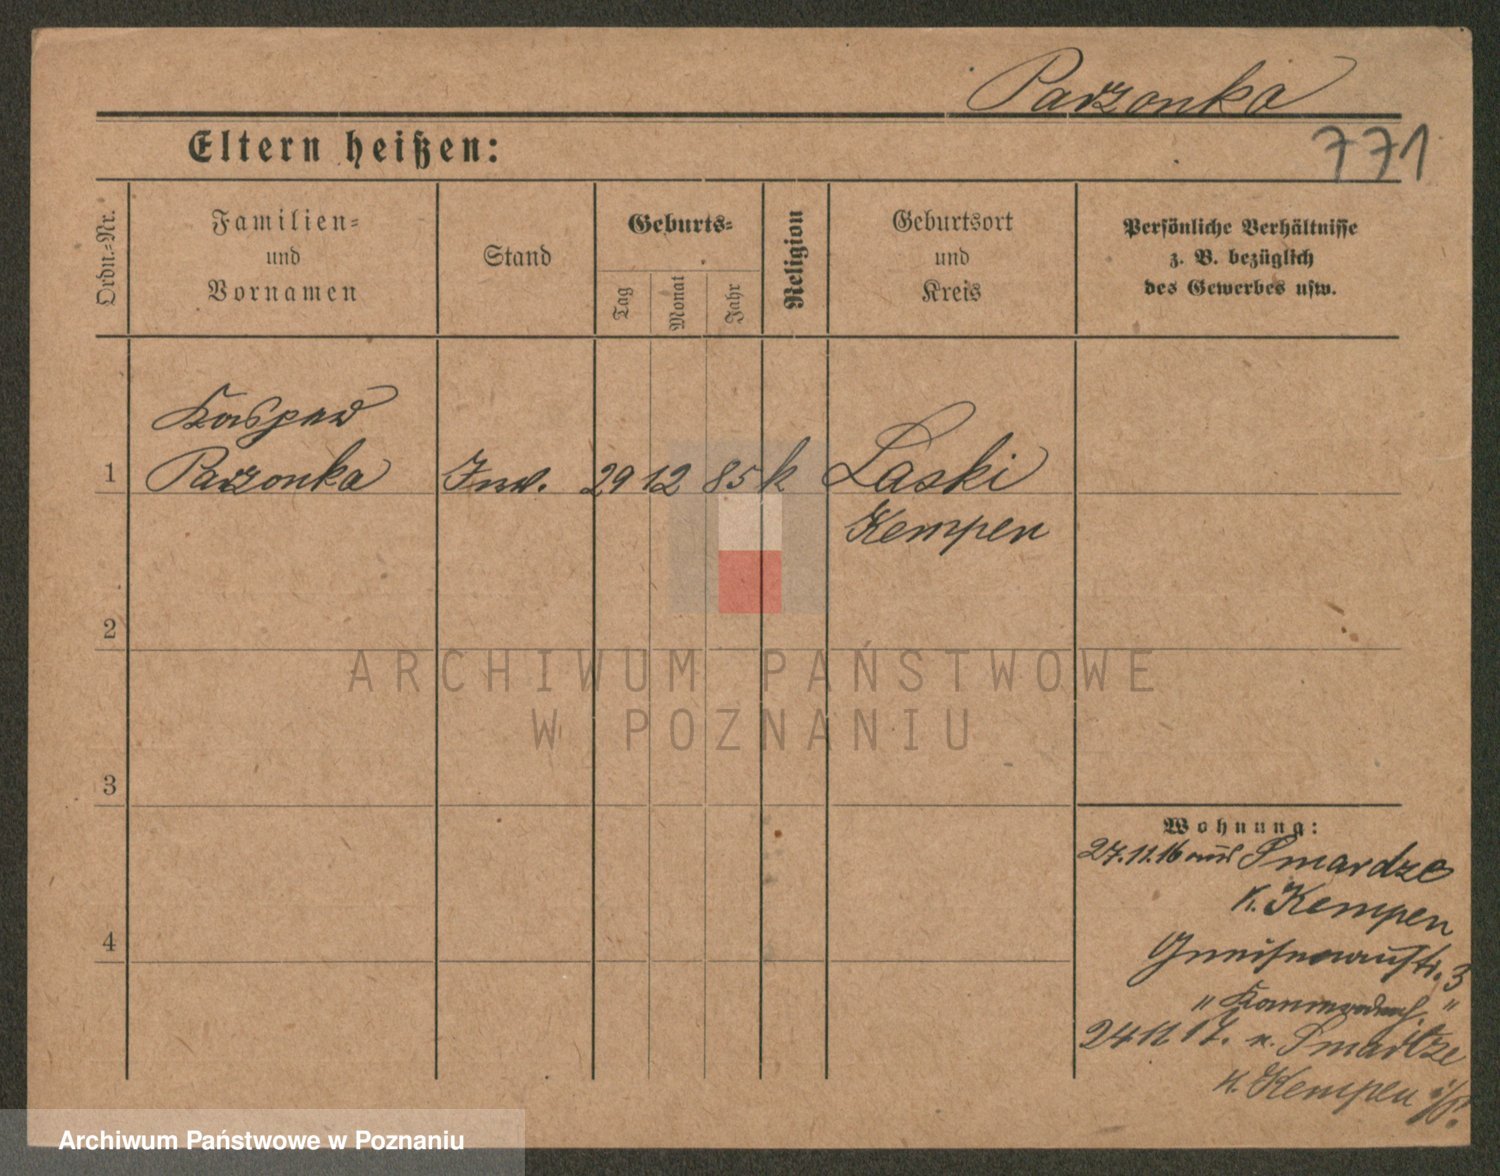 Parzonka
771
Eltern heißen:
Ordn.-Nr.
Familien-
und
Vornamen
Stand
Geburts-
Tag
Monat
Jahr
Religion
Geburtsort
und
Kreis
Persönliche Verhältnisse
z. B. bezüglich
des Gewerbes usw.
Kasper
1 Parzonka Inv. 29 12 85 k Laski
Kempen
2
3
4
Wohnung:
27.11.16 aus Smardze
K. Kempen
Gneisenaustr. 3
" "
24 11 17. n. Smardze
K. Kempen i/P.
ARCHIWUM PAŃSTWOWE
W POZNANIU
Archiwum Państwowe w Poznaniu